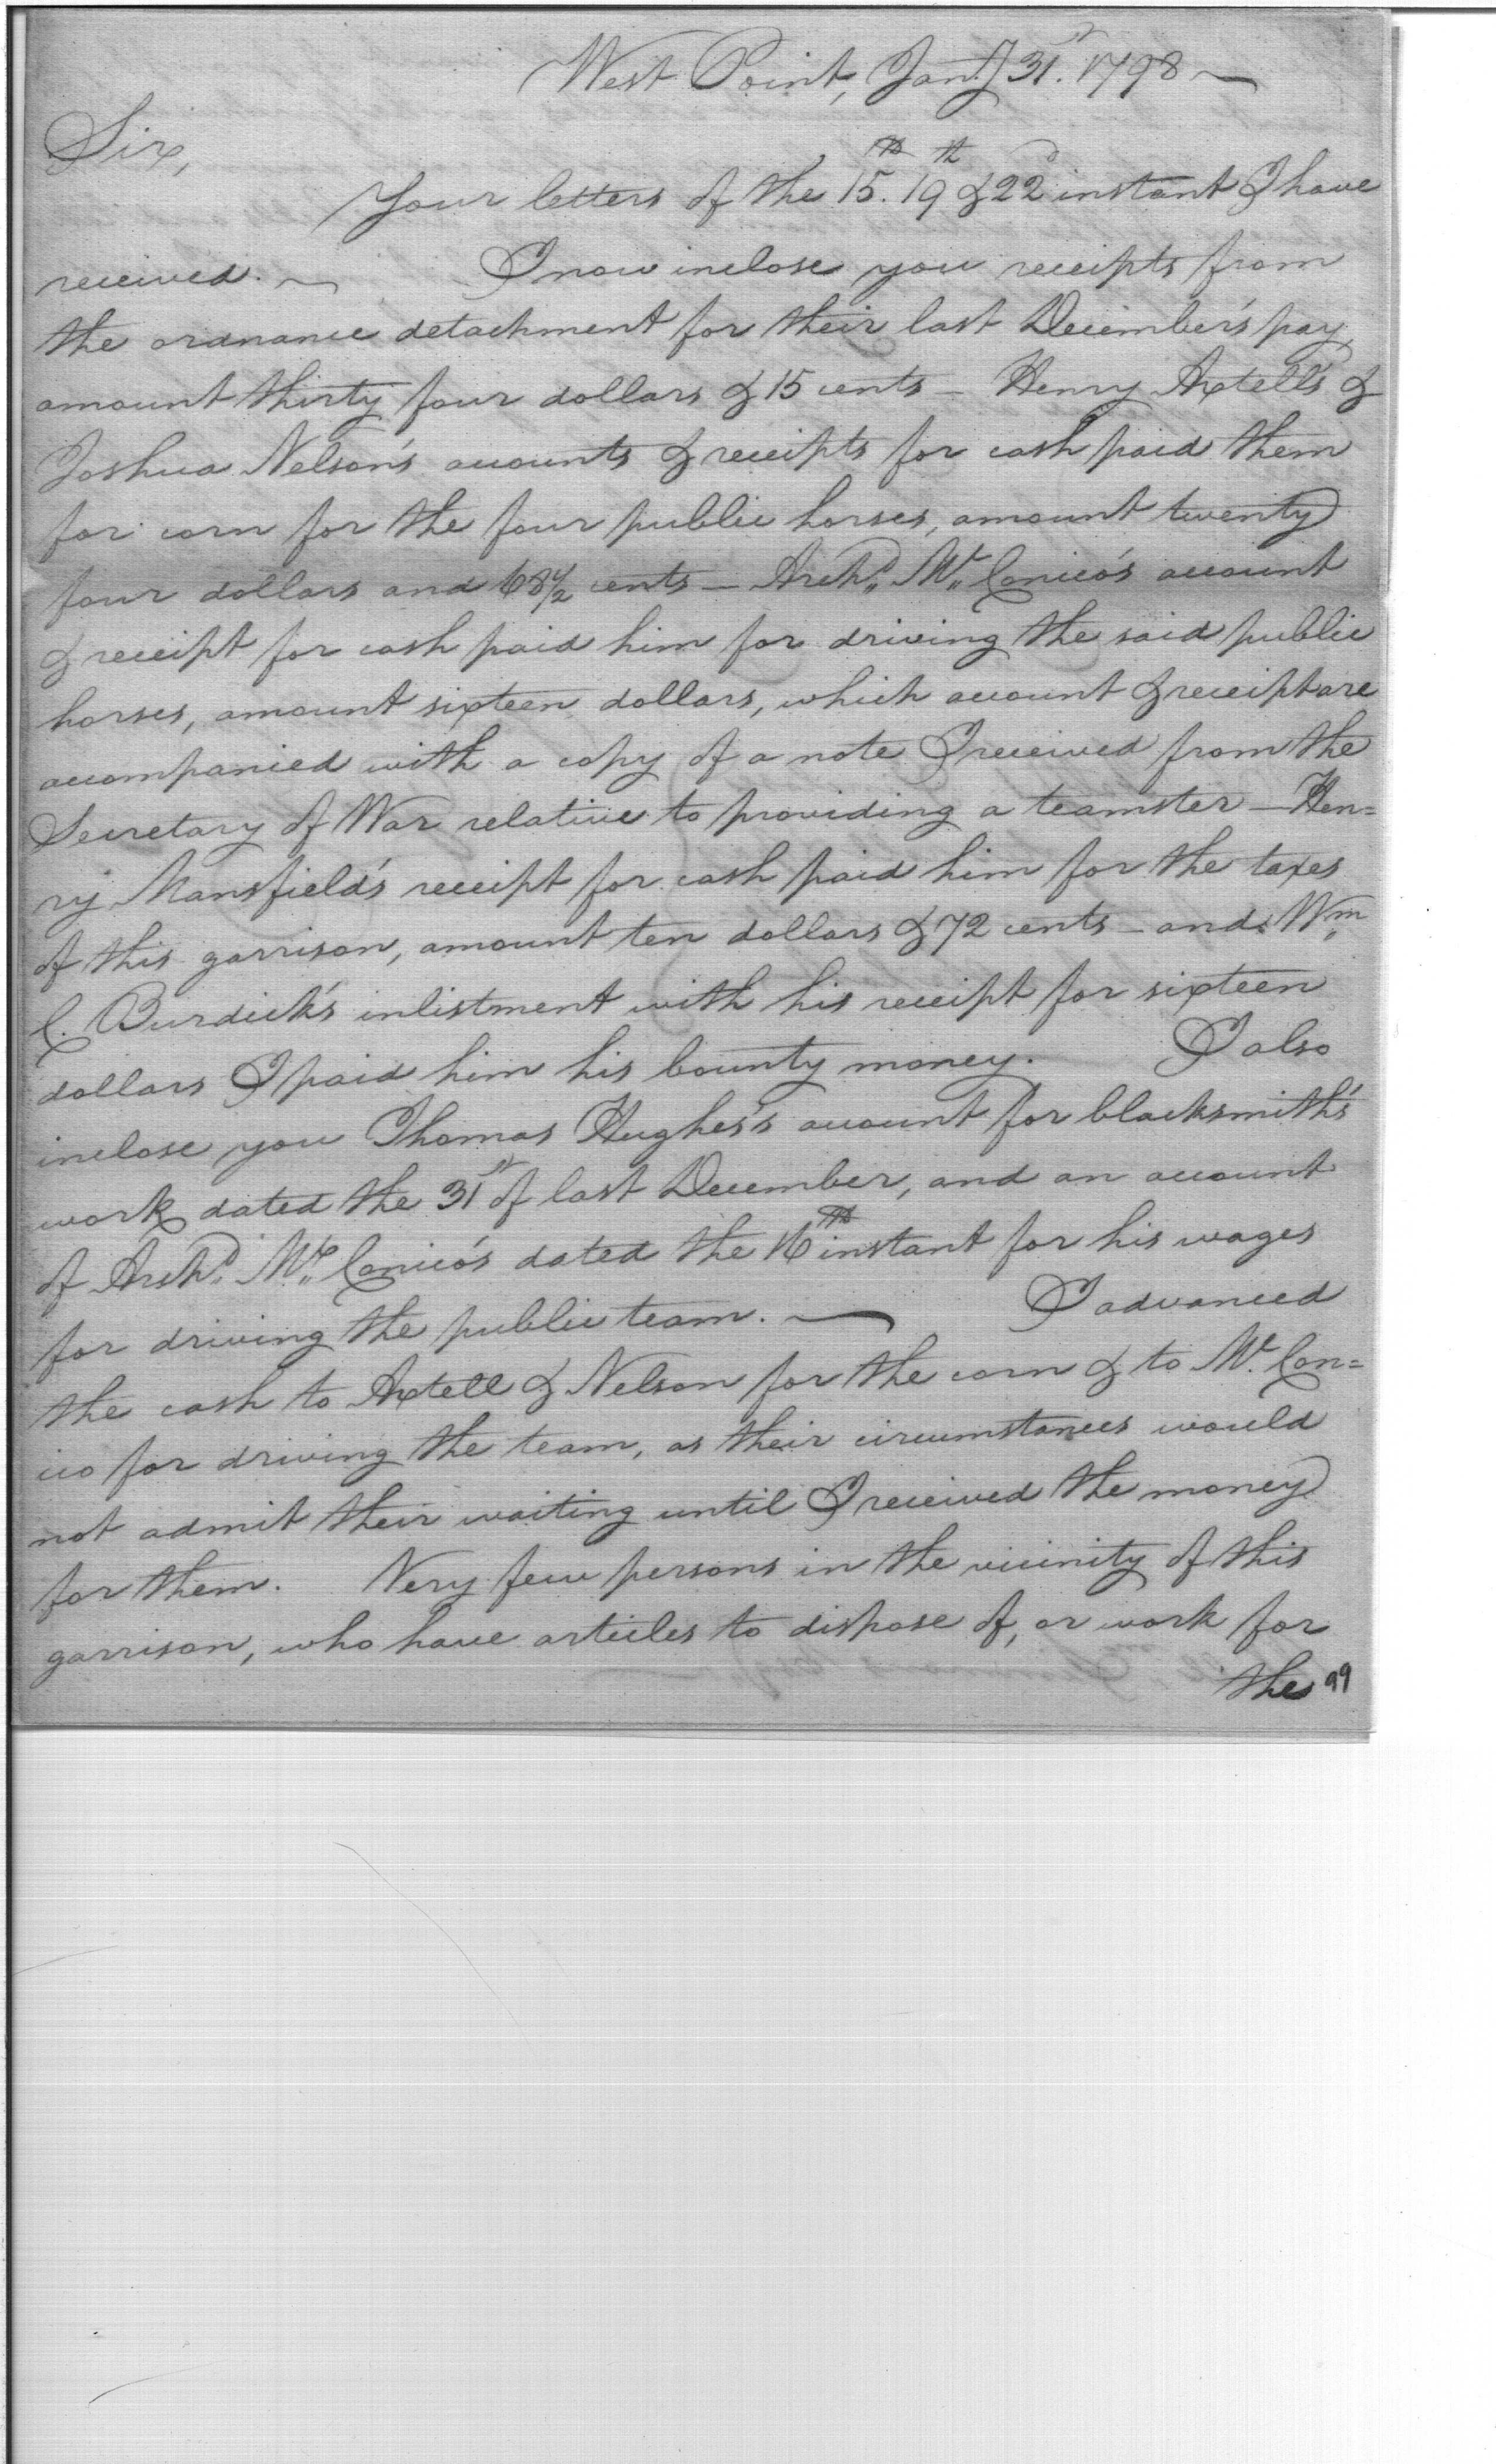 West Point, Jany 31st. 1798
Sir,
Your letters of the 15th. 19th & 22d instant I have
received. I now inclose you receipts from
the ordnance detachment for their last December's pay,
amount thirty four dollars & 15 cents — Henry Axtell's &
Joshua Nelson's accounts & receipts for cash paid them
for corn for the four public horses, amount twenty
four dollars and 68 1/2 cents — Archd. Mc. Conico's account
& receipt for cash paid him for driving the said public
horses, amount sixteen dollars, which account & receipt are
accompanied with a copy of a note I received from the
Secretary of War relative to providing a teamster — Hen=
ry Mansfield's receipt for cash paid him for the taxes
of this garrison, amount ten dollars & 72 cents — and Wm.
C. Burdick's inlistment with his receipt for sixteen
dollars I paid him his bounty money. I also
inclose you Thomas Hughes's account for blacksmith's
work dated the 31st of last December, and an account
of Archd. Mc. Conico's dated the 16th instant for his wages
for driving the public team. — I advanced
the cash to Axtell & Nelson for the corn & to Mc. Con=
ico for driving the team, as their circumstances would
not admit their waiting until I received the money
for them. Very few persons in the vicinity of this
garrison, who have articles to dispose of, or work for
the 99